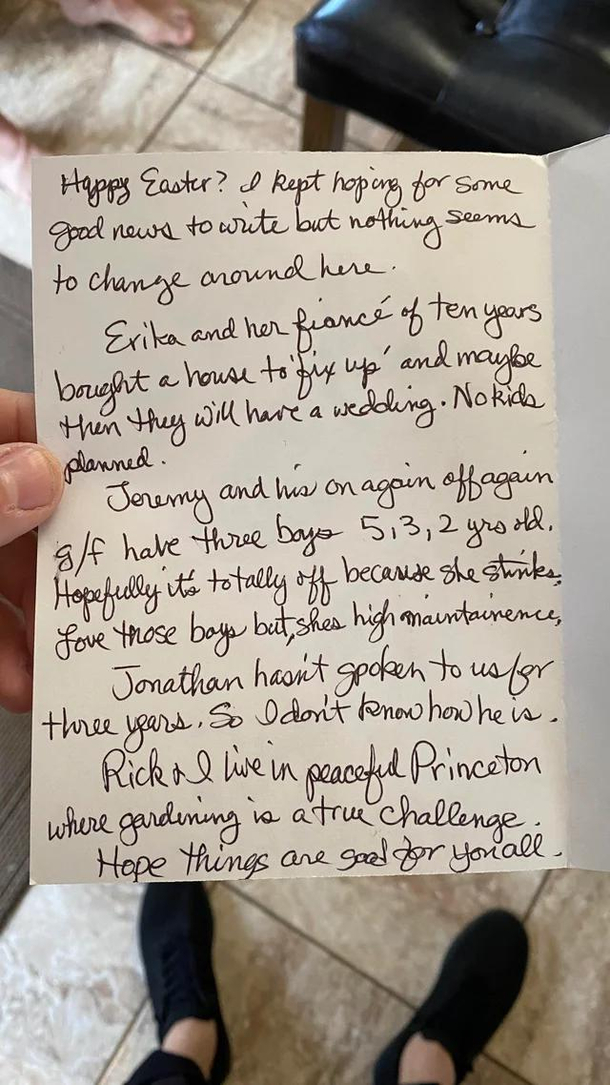 Happy Easter? I kept hoping for some
good news to write but nothing seems
to change around here.
Erika and her fiancé of ten years
bought a house to 'fix up' and maybe
then they will have a wedding. No kids
planned.
Jeremy and his on again off again
g/f have three boys 5, 3, 2 yrs old.
Hopefully it's totally off because she stinks.
Love those boys but, shes high maintainence,
Jonathan hasn't spoken to us for
three years. So I don't know how he is.
Rick & I live in peaceful Princeton
where gardening is a true challenge.
Hope things are good for you all.